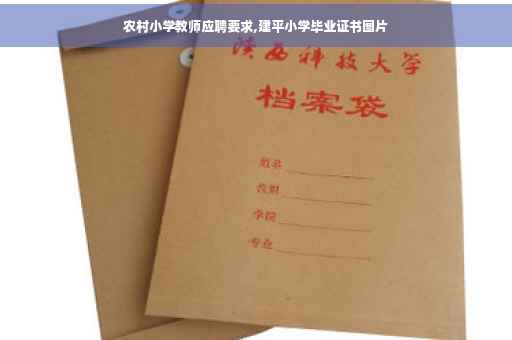 农村小学教师应聘要求,建平小学毕业证书图片
陕西科技大学
档案袋
姓名
学院
专业